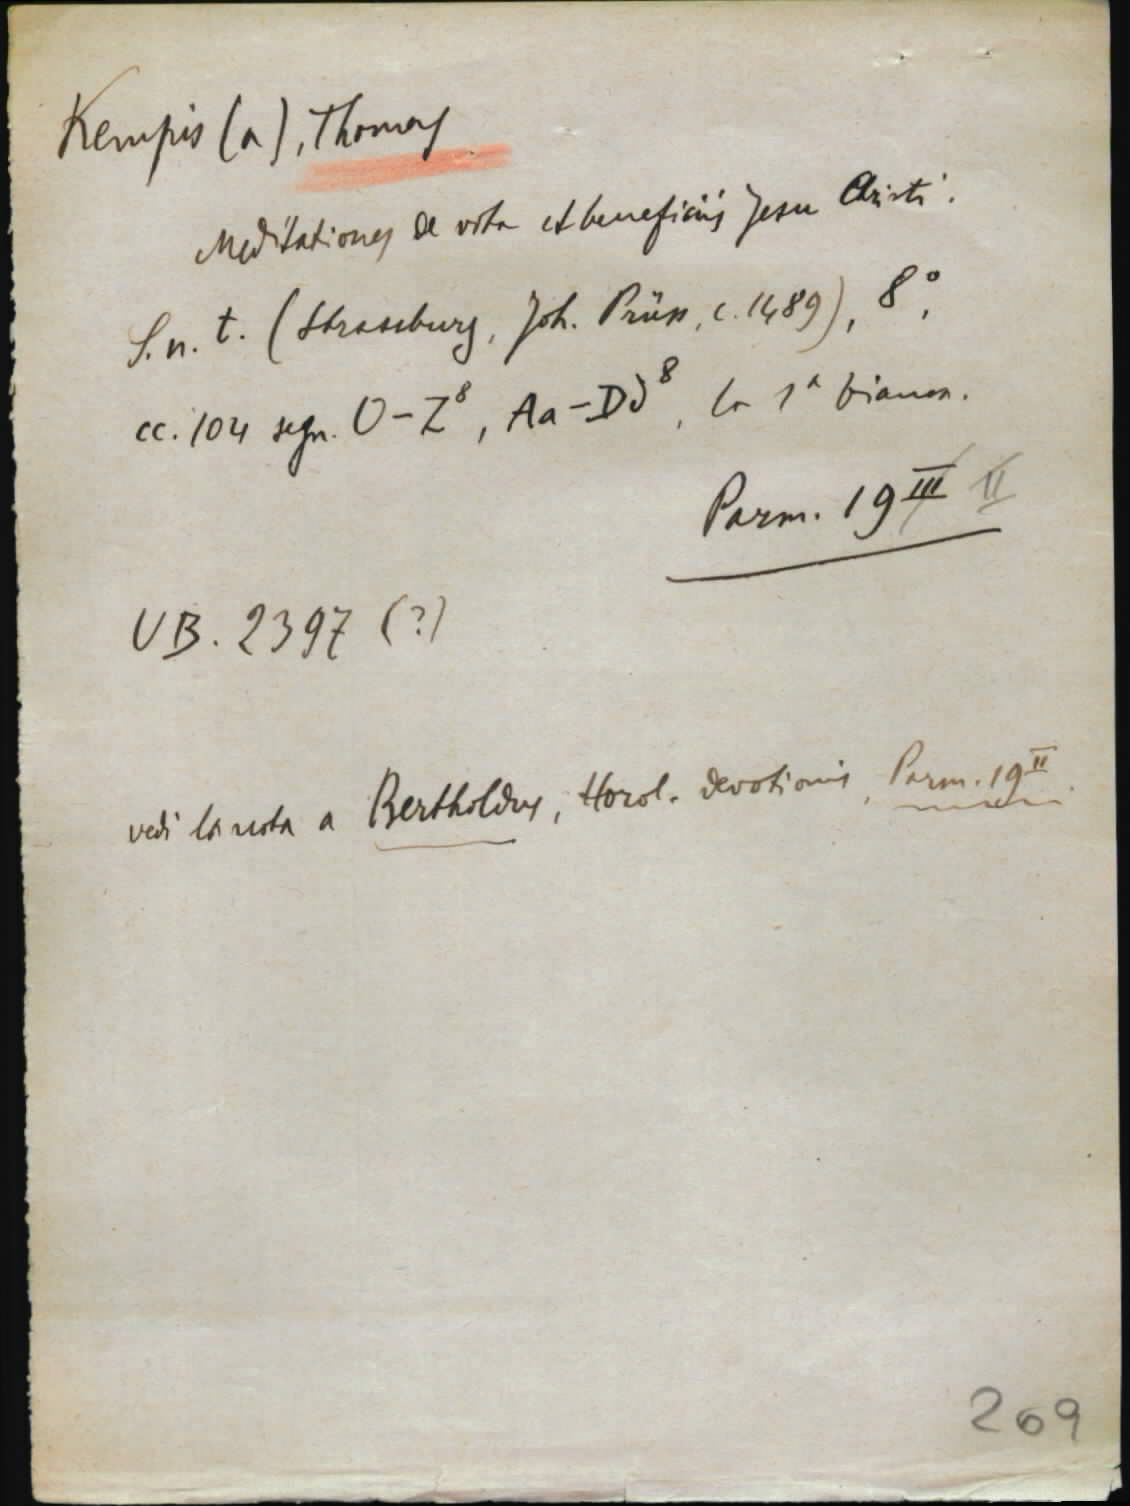 Kempis (a), Thomas
Meditationes de vita et beneficiis Jesu Christi.
S. n. t. (Strassburg, Joh. Prüss, c. 1489), 8°,
cc. 104 segn. U-Z⁸, Aa-Dd⁸, la 1ª bianca.
Parm. 19 III II
UB. 2397 (?)
vedi la nota a Bertholdus, Horol. devotionis, Parm. 19 II.
269